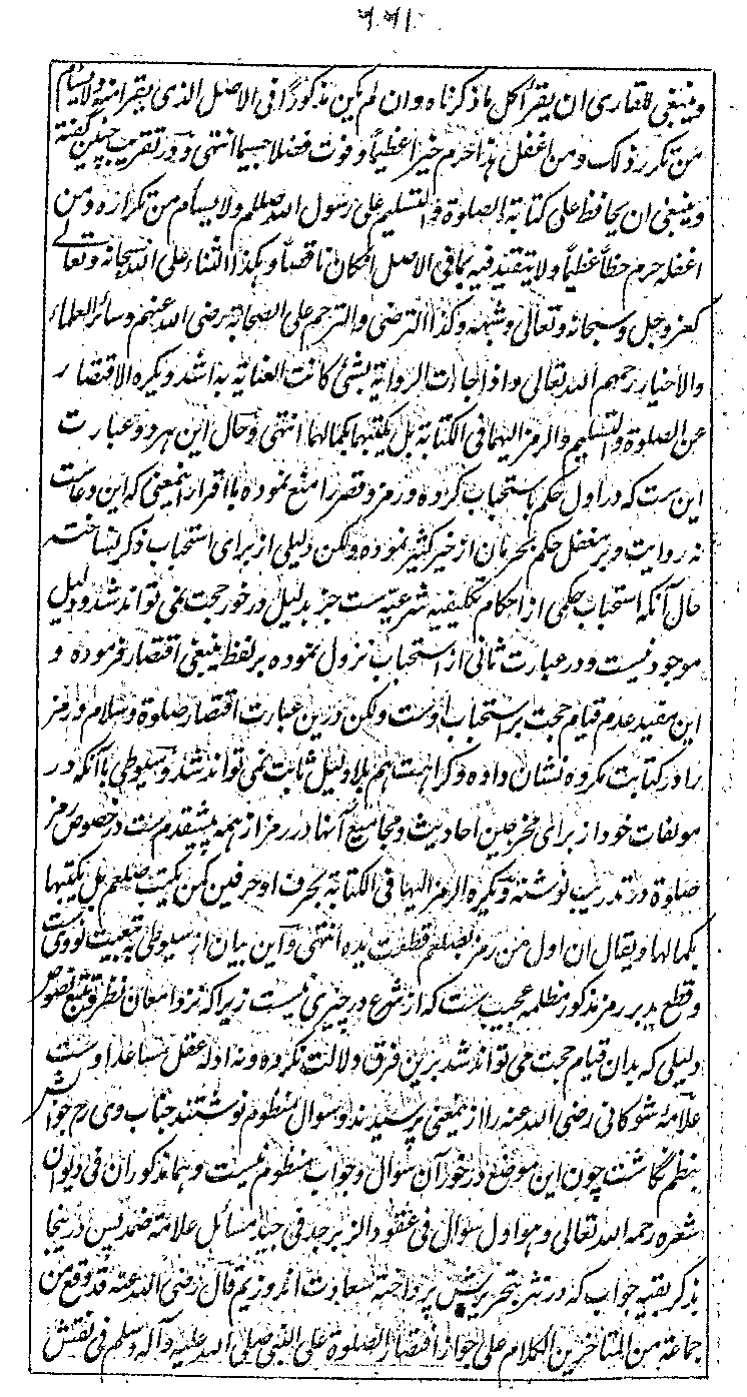 وینبغی للقاری ان یقرأ کل ما ذکرناه وان لم یکن مذکورًا فی الاصل الذی یقرأ منه ولا یسأم
من تکرر ذلک ومن اغفل هذا حرم خیرا عظیماً وفوت فضلا جسیما انتهی ودر تقریب چنین گفته
وینبغی ان یحافظ علی کتابة الصلوة والتسلیم علی رسول الله صللم ولا یسأم من تکراره ومن
اغفله حرم حظاً عظیماً ولا یتقید فیه بما فی الاصل انکان ناقصاً وهکذا الثناء علی الله سبحانه وتعالے
کعز وجل وسبحانه وتعالی وشبهه وکذا الترضی والترحم علی الصحابة رضی الله عنهم وسائر العلماء
والاخیار رحمهم الله تعالی واذا جاءت الروایة بشئ کانت العنایة به اشد ویکره الاقتصار
عن الصلوة والتسلیم والرمز الیهما فی الکتابة بل یکتبهما بکمالهما انتهی وحال این هر دو عبارت
این ست که در اول حکم باستحباب کرده ورمز وقصر را منع نموده با اقرار اینمعنی که این دعاست
نه روایت وبر مغفل حکم بحرمان از خیر کثیر نموده ولکن دلیلی از برای استحباب ذکر نساخته
حال آنکه استحباب حکمی از احکام تکلیفیه شرعیه ست جز بدلیل در خور حجت نمی تواند شد ودلیل
موجود نیست ودر عبارت ثانی از استحباب نزول نموده بر لفظ ینبغی اقتصار فرموده و
این مفید عدم قیام حجت بر استحباب اوست ولکن درین عبارت اقتصار صلوة وسلام ورمز
را در کتابت مکروه نشان داده وکراهت هم بلا دلیل ثابت نمی تواند شد وسیوطی با آنکه در
مولفات خود از برای مخرجین احادیث ومجامیع آنها در رمز از همه پیشقدم ست در خصوص رمز
صلوة در تدریب نوشته ویکره الرمز الیها فی الکتابة بحرف او حرفین کمن یکتب صلعم بل یکتبها
بکمالها ویقال ان اول من رمز بصلعم قطعت یده انتهی واین بیان از سیوطی به تبعیت نووی ست
وقطع ید بر رمز مذکور مظلمه عجیب ست که از شرع در چیزی نیست زیرا که نزد امعان نظر وتتبع نصوص
دلیلی که بدان قیام حجت می تواند شد برین فرق دلالت نکرده ونه ادله عقل مساعد اوست
علامه شوکانی رضی الله عنه را ازینمعنی پرسیدند وسوال منظوم نوشتند جناب وی رح جوابش
بنظم نگاشت چون این موضع در خور آن سوال وجواب منظوم نیست وهما مذکوران فی دیوان
شعره رحمه الله تعالی وهو اول سوال فی عقود الزبرجد فی جید مسائل علامه ضمد پس درینجا
بذکر بقیه جواب که در نثر بتحریرش پرداخته سعادت اندوزیم قال رضی الله عنه قد وقع من
جماعة من المتاخرین الکلام علی جواز اقتصار الصلوة علی النبی صلی الله علیه وآله وسلم فی نقش